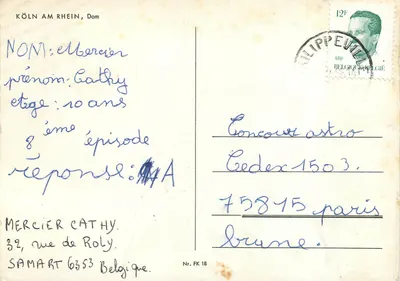 KÖLN AM RHEIN, Dom
NOM: Mercier
prénom: Cathy
etge: 10 ans
8ème épisode
réponse: A
MERCIER CATHY.
32, rue de Roly.
SAMART 6353 Belgique.
Nr. FK 18
12F
BELGIQUE-BELGIË
ILIPPEVIL
Concours astro
Cedex 1503.
75815 paris
brune.